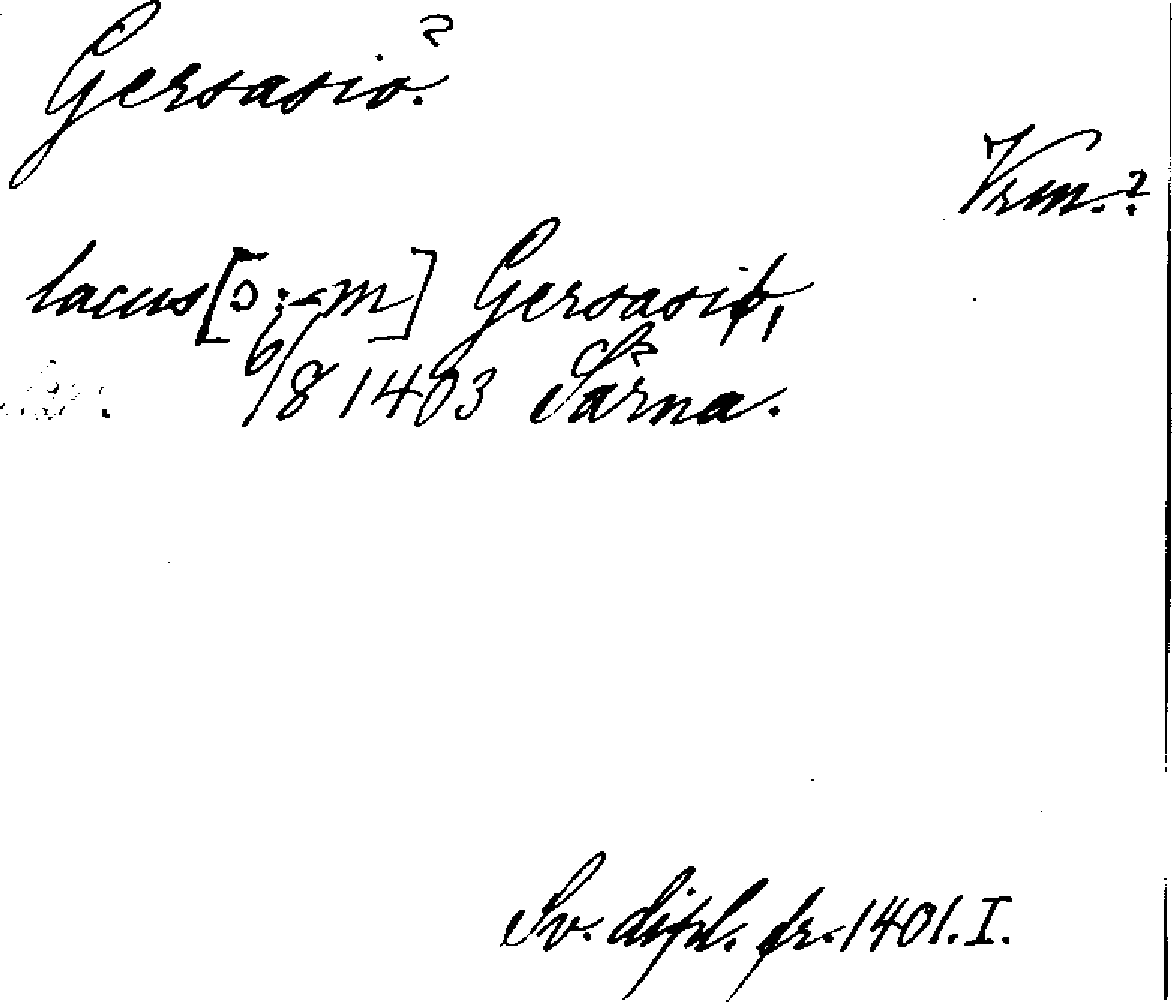 Gersasio.?
Vrm.?
lacus [ɔ: -m] Gersasiø,
6/8 1403 Särna.
Sv. dipl. fr. 1401. I.